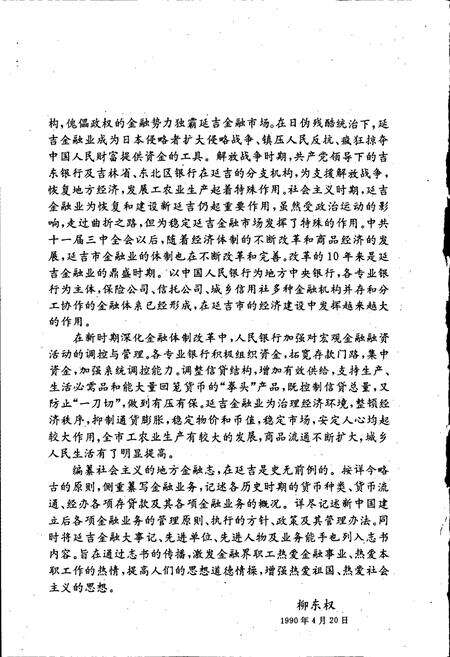 构,傀儡政权的金融势力独霸延吉金融市场。在日伪残酷统治下,延
吉金融业成为日本侵略者扩大侵略战争、镇压人民反抗、疯狂掠夺
中国人民财富提供资金的工具。解放战争时期,共产党领导下的吉
东银行及吉林省、东北区银行在延吉的分支机构,为支援解放战争,
恢复地方经济,发展工农业生产起着特殊作用。社会主义时期,延吉
金融业为恢复和建设新延吉仍起重要作用,虽然受政治运动的影
响,走过曲折之路,但为稳定延吉金融市场发挥了特殊的作用。中共
十一届三中全会以后,随着经济体制的不断改革和商品经济的发
展,延吉市金融业的体制也在不断改革和完善。改革的10年来是延
吉金融业的鼎盛时期。以中国人民银行为地方中央银行,各专业银
行为主体,保险公司、信托公司、城乡信用社多种金融机构并存和分
工协作的金融体系已经形成,在延吉市的经济建设中发挥越来越大
的作用。
在新时期深化金融体制改革中,人民银行加强对宏观金融融资
活动的调控与管理。各专业银行积极组织资金,拓宽存款门路,集中
资金,加强系统调控能力。调整信贷结构,增加有效供给,支持生产、
生活必需品和能大量回笼货币的“拳头”产品,既控制信贷总量,又
防止“一刀切”,做到有压有保。延吉金融业为治理经济环境,整顿经
济秩序,抑制通货膨胀,稳定物价和币值,稳定市场,安定人心均起
较大作用,全市工农业生产有较大的发展,商品流通不断扩大,城乡
人民生活有了明显提高。
编纂社会主义的地方金融志,在延吉是史无前例的。按详今略
古的原则,侧重纂写金融业务,记述各历史时期的货币种类、货币流
通、经办各项存贷款及其各项金融业务的概况。详尽记述新中国建
立后各项金融业务的管理原则、执行的方针、政策及其管理办法。同
时将延吉金融大事记、先进单位、先进人物及业务能手也列入志书
内容。旨在通过志书的传播,激发金融界职工热爱金融事业、热爱本
职工作的热情,提高人们的思想道德情操,增强热爱祖国、热爱社会
主义的思想。
柳东权
1990年4月20日